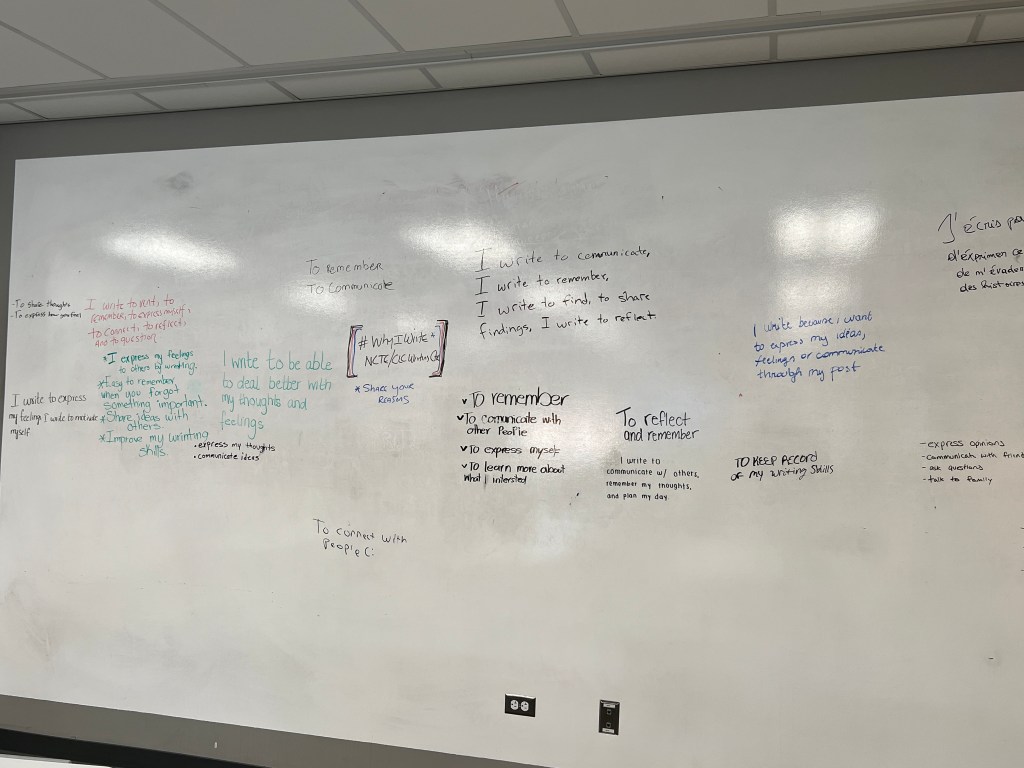 -To share thoughts
-To express how you feel
I write to vent, to
remember, to express myself,
to connect, to reflect,
and to question
*I express my feelings
to others by wrinting.
*Easy to remember
when you forgot
something important.
*Share ideas with
others.
*Improve my wrinting
skills.
I write to express
my feelings I write to motivate
myself
I write to be able
to deal better with
my thoughts and
feelings
• express my thoughts
• communicate ideas
To remember
To Communicate
#WhyIWrite
NCTE/
*Share your
REASONS
To connect with
People C:
I write to communicate,
I write to remember,
I write to find, to share
findings, I write to reflect
To remember
To comunicate with
other People
To express myself
To learn more about
what I intersted
To reflect
and remember
I write to
communicate w/ others,
remember my thoughts,
and plan my day.
I write because i want
to express my ideas,
feelings or communicate
through my post
TO KEEP RECORD
OF my writing skills
J'écris
d'exprimer
de m'évader
des histoires
- express opinions
- communicate with friend
- ask questions
- talk to family